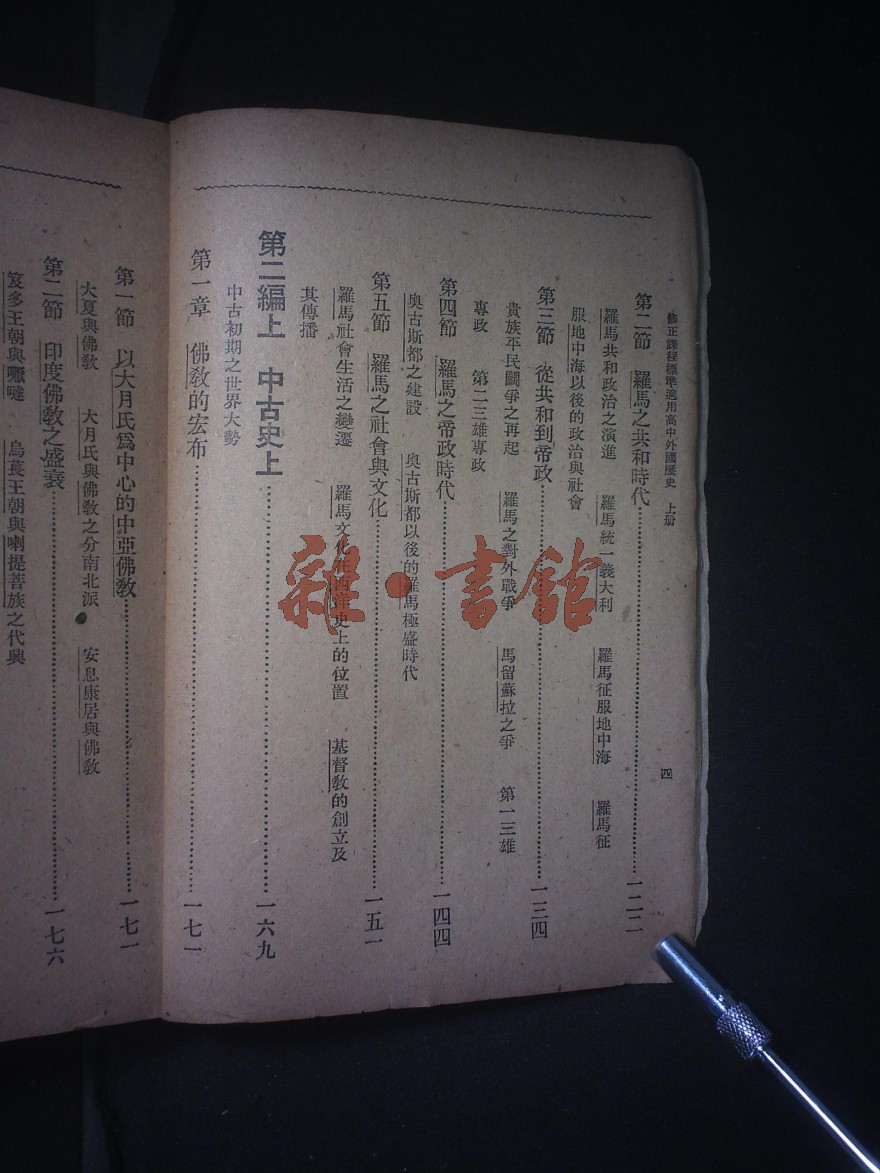 修正課程標準適用高中外國歷史　上册
四
第二節　羅馬之共和時代……一二二
羅馬共和政治之演進　羅馬統一義大利　羅馬征服地中海　羅馬征
服地中海以後的政治與社會
第三節　從共和到帝政……一三四
貴族平民鬬爭之再起　羅馬之對外戰爭　馬留蘇拉之爭　第一三雄
專政　第二三雄專政
第四節　羅馬之帝政時代……一四四
奧古斯都之建設　奧古斯都以後的羅馬極盛時代
第五節　羅馬之社會與文化……一五一
羅馬社會生活之變遷　羅馬文化在西洋史上的位置　基督教的創立及
其傳播
第二編上　中古史上……一六九
中古初期之世界大勢
第一章　佛教的宏布……一七一
第一節　以大月氏爲中心的中亞佛教……一七一
大夏與佛教　大月氏與佛教之分南北派　安息康居與佛教
第二節　印度佛教之盛衰……一七六
笈多王朝與嚈噠　烏萇王朝與喇提菩族之代興
雜·書館